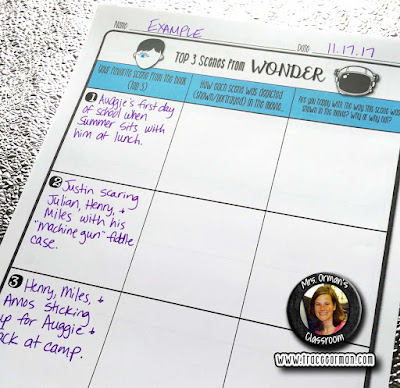 Name: EXAMPLE
Date 11.17.17
Top 3 Scenes from WONDER
Your favorite scene from the book
(top 3)
How each scene was depicted
(shown/portrayed) in the movie...
Are you happy with the way this scene was
shown in the movie? Why or why not?
1 Auggie's first day
of school when
Summer sits with
him at lunch.
2 Justin scaring
Julian, Henry, +
Miles with his
"machine gun" fiddle
case.
3 Henry, Miles, +
Amos sticking
up for Auggie +
Jack at camp.
Mrs. Orman's
Classroom
www.traceeorman.com